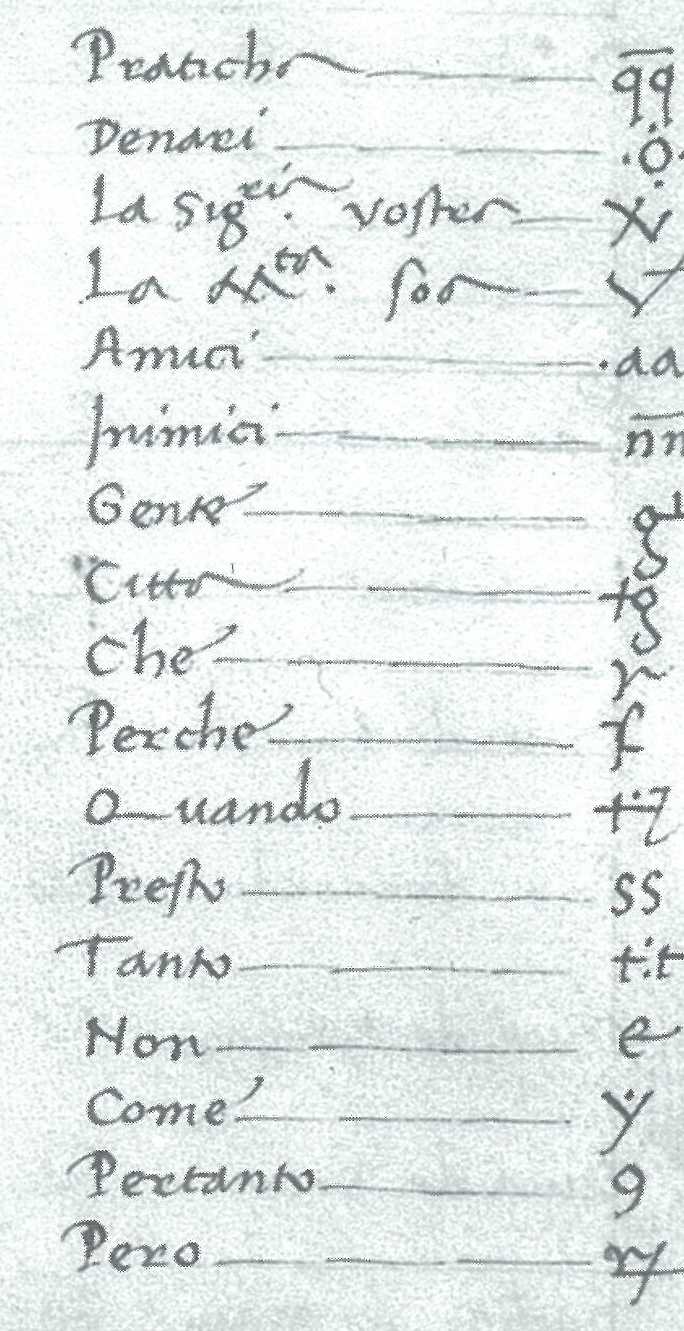 Praticha — qq
Denari — .o.
La Sig.ria vostra — x
La Mta. soa
Amici — .aa
Inimici — nn
Gente — g
Citta — +g
Che — r
Perche — f
Quando
Presto — ss
Tanto — t:t
Non — e
Come — ẏ
Pertanto — 9
Pero